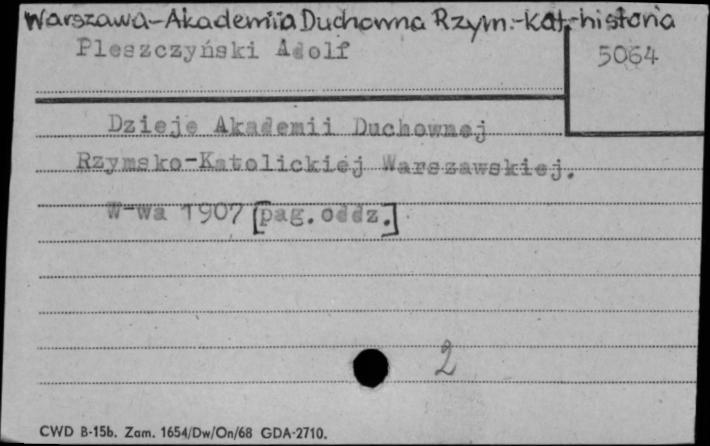 Warszawa-Akademia Duchowna Rzym.-kat.-historia
Pleszczyński Adolf
5064
Dzieje Akademii Duchownej
Rzymsko-Katolickiej Warszawskiej.
W-wa 1907 [pag. oddz.]
2
CWD B-15b. Zam. 1654/Dw/On/68 GDA-2710.